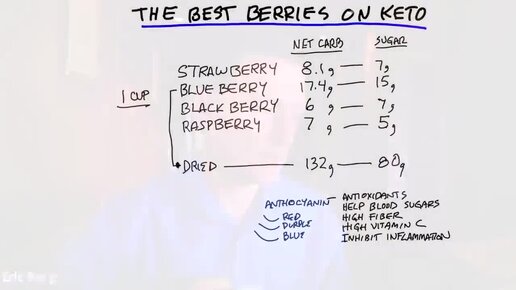 THE BEST BERRIES ON KETO
NET CARB SUGAR
STRAWBERRY 8.1g — 7g
1 CUP BLUEBERRY 17.4g — 15g
BLACKBERRY 6g — 7g
RASPBERRY 7g — 5g
DRIED — 132g — 80g
ANTHOCYANIN — ANTIOXIDANTS
RED HELP BLOOD SUGARS
PURPLE HIGH FIBER
BLUE HIGH VITAMIN C
INHIBIT INFLAMMATION